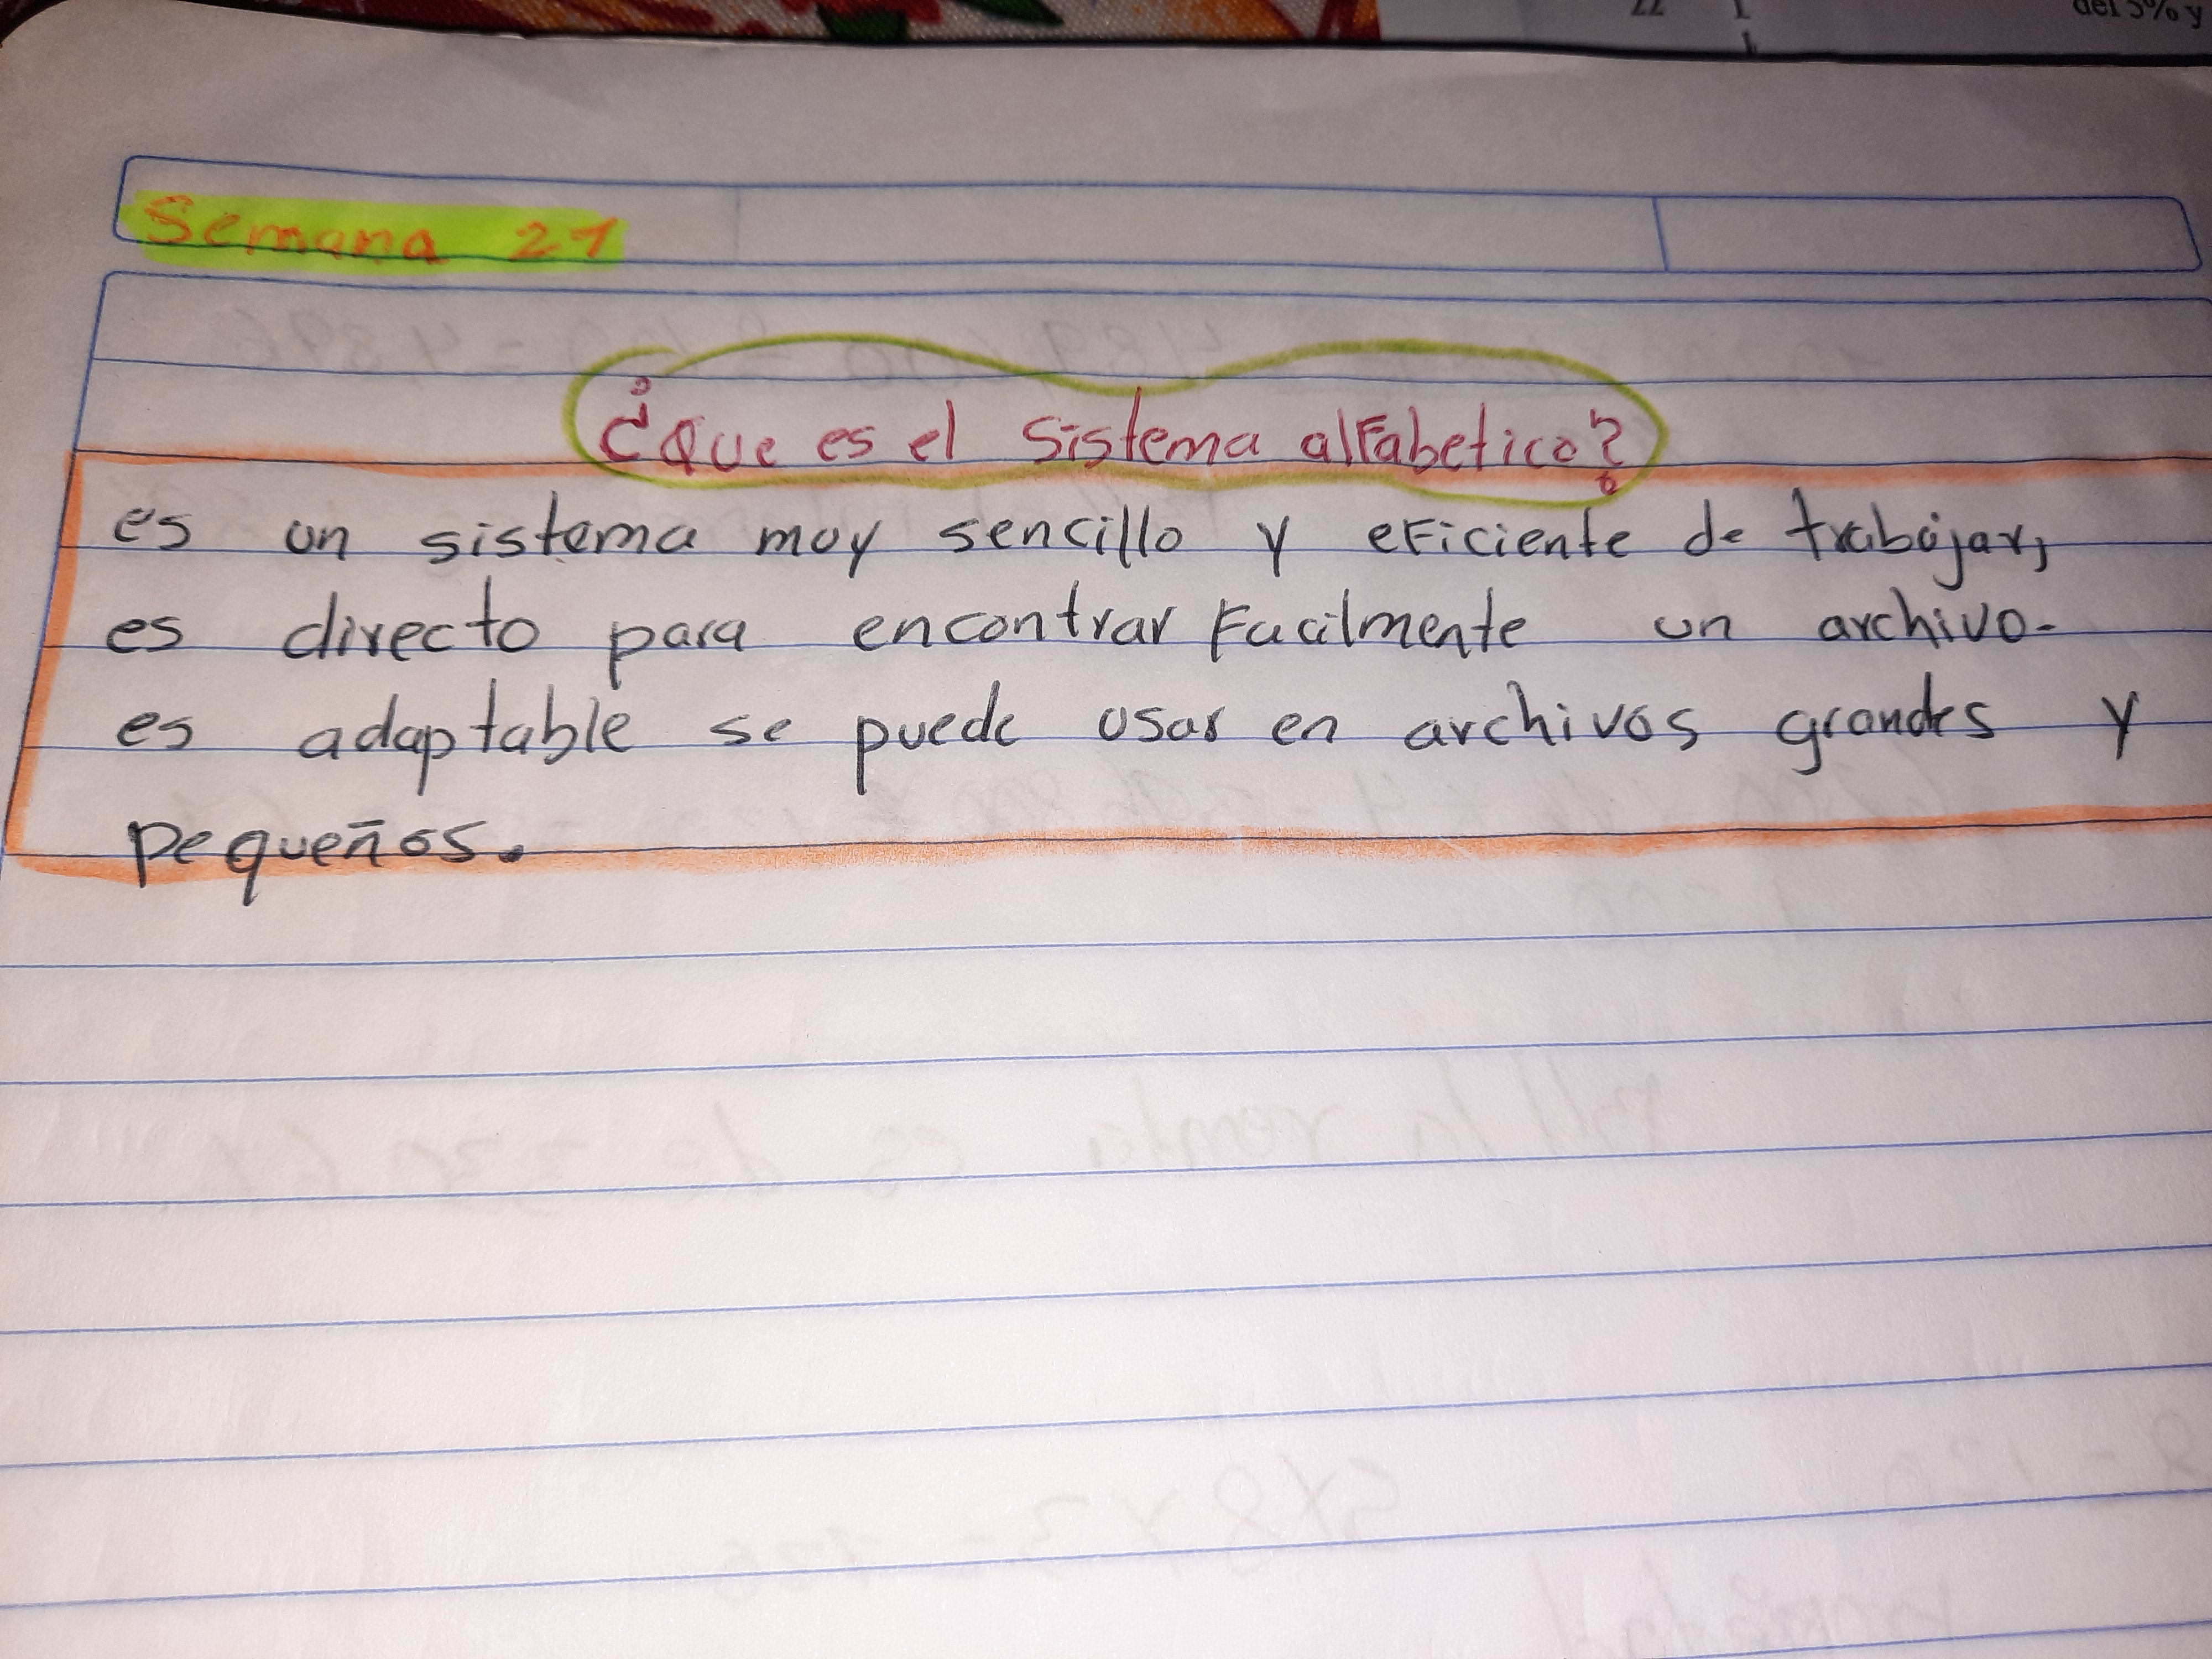 del 5% y
Semana 21
¿Que es el sistema alfabetico?
es un sistema muy sencillo y eficiente de trabajar,
es directo para encontrar facilmente un archivo-
es adaptable se puede usar en archivos grandes y
pequeños.